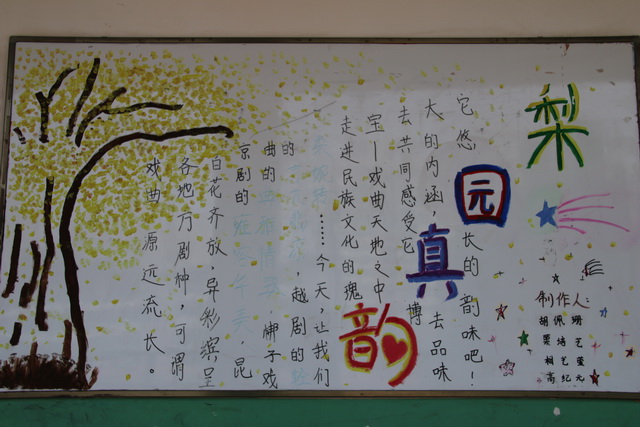 梨
园
真
韵
戏曲源远流长。
各地方剧种,可谓
百花齐放,异彩缤呈
京剧的,昆
曲的,梆子戏
的,越剧的轻
……今天,让我们
走进民族文化的瑰
宝—戏曲天地之中
去共同感受它博
大的内涵,去品味
它悠长的韵味吧!
制作人:
胡佩珊
培艺
艺萱
高纪元